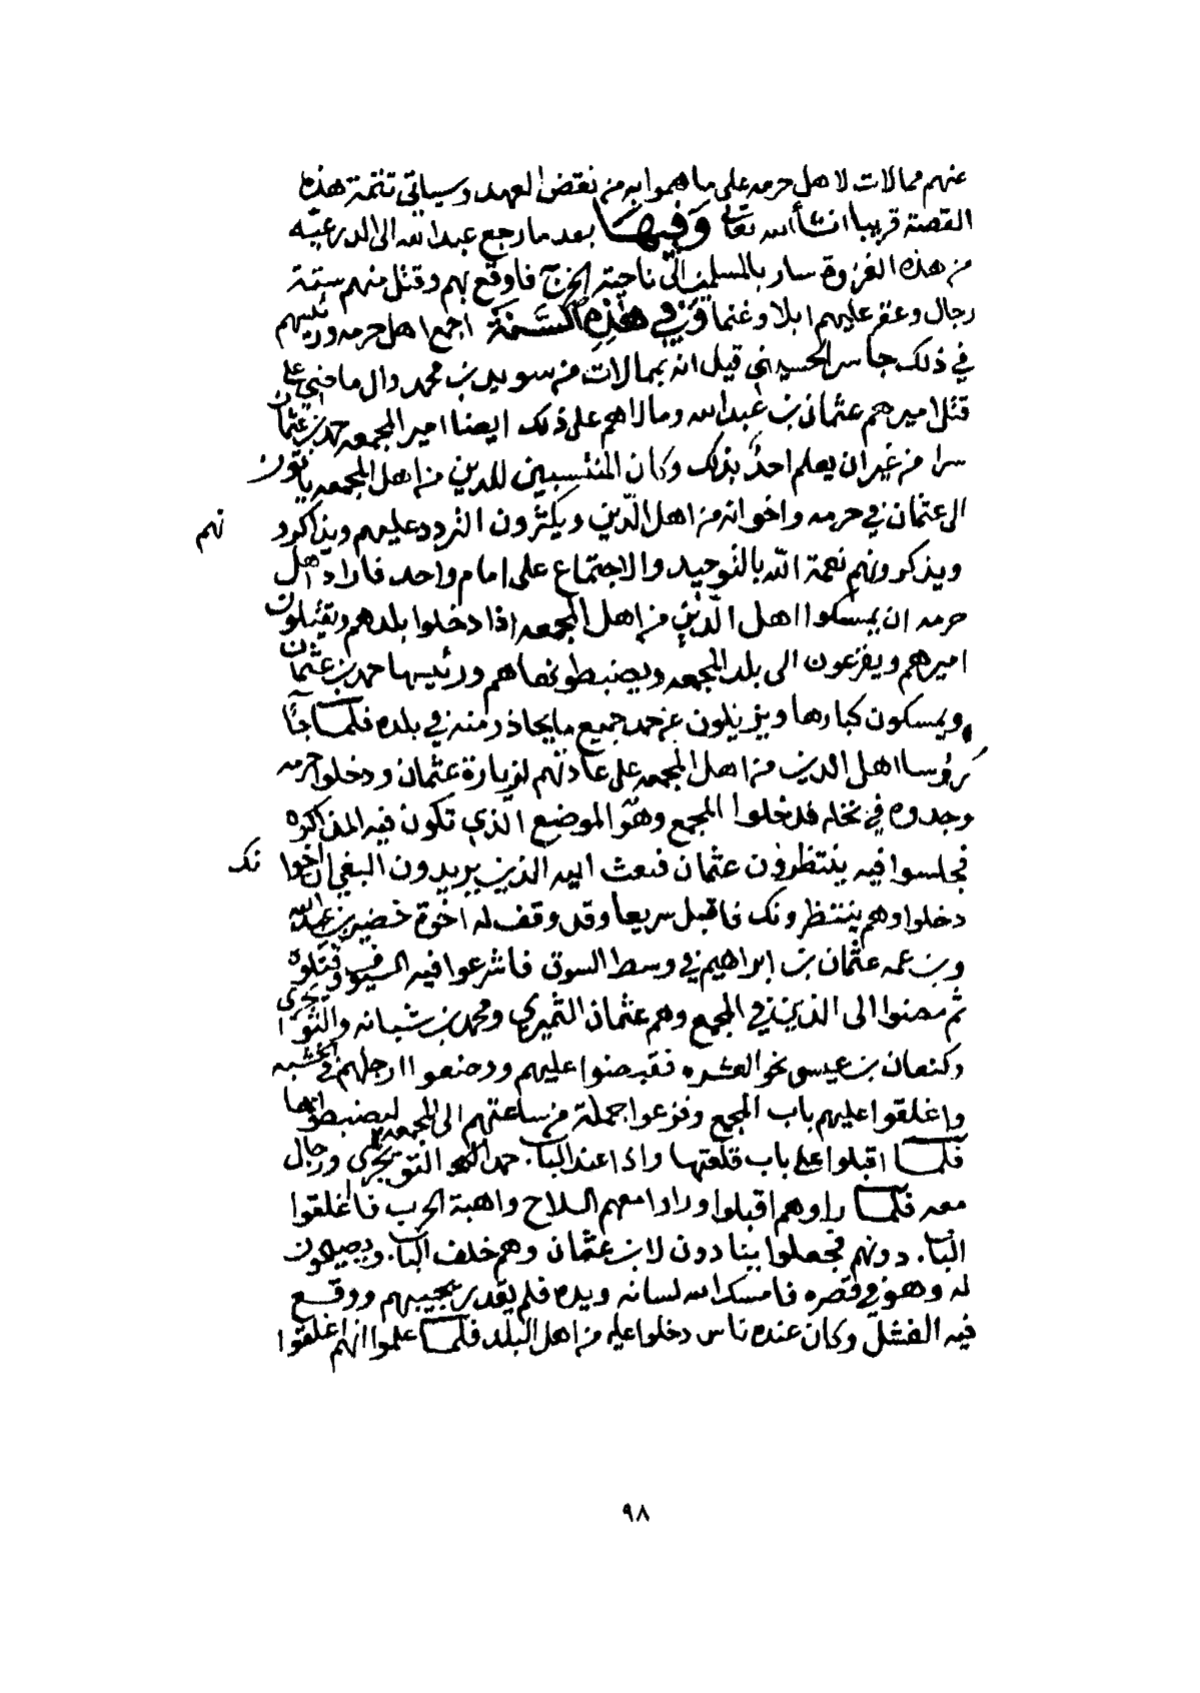 عنهم ممالات لاهل حرمه على ما هموا به من نقض العهد وسياتي تتمة هذه
القصة قريبا انشأ الله تعالى وفيها بعد ما رجع عبد الله الى الدرعيّه
من هذه الغزوة سار بالمسلمين الى ناحية الخرج فاوقع بهم وقتل منهم ستة
رجال وعقر عليهم ابلا وغنما وفي هذه السنة اجمع اهل حرمه ورئيسهم
في ذلك جاسر الحسيني قيل انه بممالات من سويد بن محمد وال ماضي على
قتل اميرهم عثمان بن عبدالله ومالاهم على ذلك ايضا امير المجمعه حمد بن عثمان
سرا من غير ان يعلم احدٌ بذلك وكان المنتسبين للدين من اهل المجمعه ياتون
الى عثمان في حرمه واخوانه من اهل الدّين ويكثرون التردد عليهم ويذاكرو نهم
ويذكرونهم نعمة الله بالتوحيد والاجتماع على امام واحد فاراد اهل
حرمه ان يمسكوا اهل الدّين من اهل المجمعه اذا دخلوا بلدهم ويقتلون
اميرهم ويفزعون الى بلد المجمعه ويضبطونها هم ورئيسها حمد بن عثمان
ويمسكون كبارها ويزيلون عن حمد جميع ما يحاذر منه في بلده فلما جآ
رؤسا اهل الدين من اهل المجمعه على عادتهم لزيارة عثمان ودخلوا حرمه
وجدوه في نخله فدخلوا المجمع وهو الموضع الذي تكون فيه المذاكره
فجلسوا فيه ينتظرون عثمان فبعث اليه الذين يريدون البغي ان اخوا نك
دخلوا وهم ينتظرونك فاقبل سريعا وقد وقف له اخوة خضير بن عبدالله
وبن عمه عثمان بن ابراهيم في وسط السوق فاشرعوا فيه السيوف وقتلوه
ثم مضوا الى الذين في المجمع وهم عثمان النميري ومحمد بن شبانه والتويجري
وكنعان بن عيسى نحو العشره فقبضوا عليهم ووضعوا ارجلهم في الخشبه
واغلقوا عليهم باب المجمع وفزعوا جملة من ساعتهم الى المجمعه ليضبطوها
فلما اقبلوا على باب قلعتها واذا عند الباب حمد التويجري ورجال
معه فلما راوهم اقبلوا وراوا معهم السلاح واهبة الحرب فاغلقوا
الباب دونهم فجعلوا ينادون لابن عثمان وهم خلف الباب ويصيحون
له وهو في قصره فامسك الله لسانه ويده فلم يقدر يجيبهم ووقع
فيه الفشل وكان عنده ناس دخلوا عليه من اهل البلد فلما علموا انهم اغلقوا
٩٨